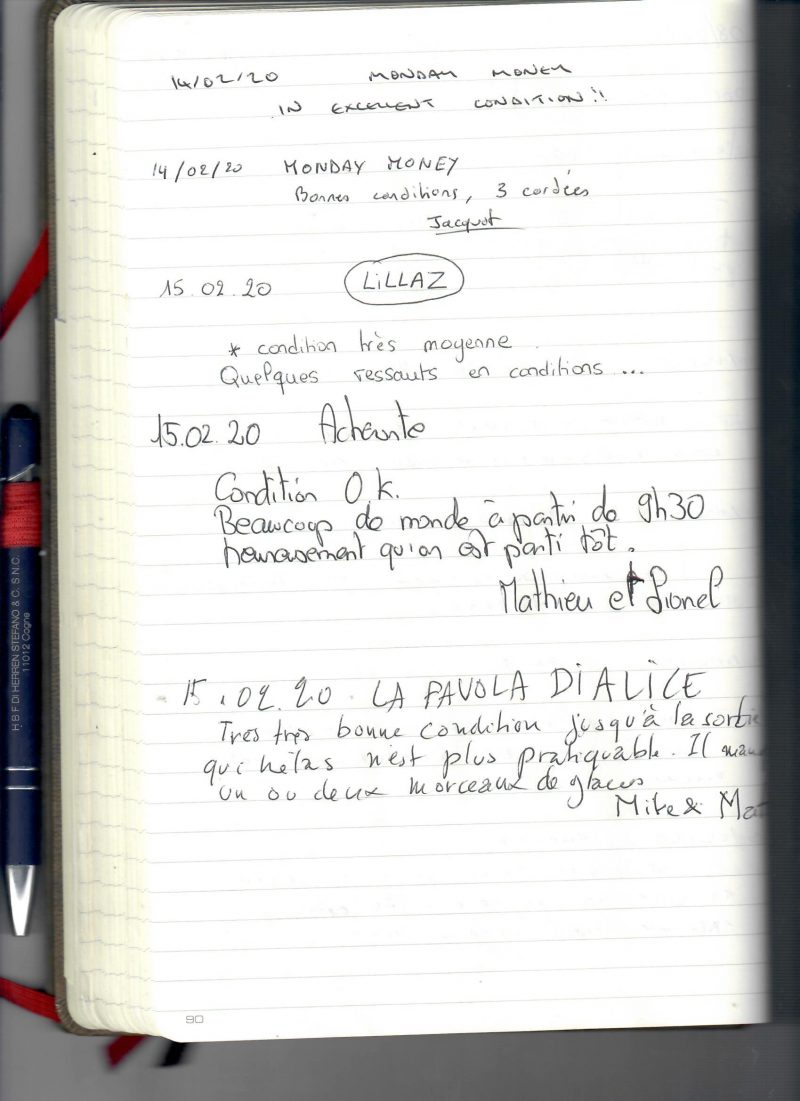 14/02/20 MONDAY MONEY
IN EXCELLENT CONDITION!!
14/02/20 MONDAY MONEY
Bonnes conditions, 3 cordées
Jacquot
15.02.20 LiLLAZ
* condition très moyenne.
Quelques ressauts en conditions ...
15.02.20
Condition O.K.
Beaucoup de monde à partir de 9h30
heureusement qu'on est parti tôt.
Mathieu et Lionel
15.02.20. LA FAVOLA Di ALiCE
Très très bonne condition jusqu'à la sortie
qui hélas n'est plus pratiquable. Il
un ou deux morceaux de glaces
Mike &
90
H B F DI HERREN STEFANO & C. S.N.C.
11012 Cogne